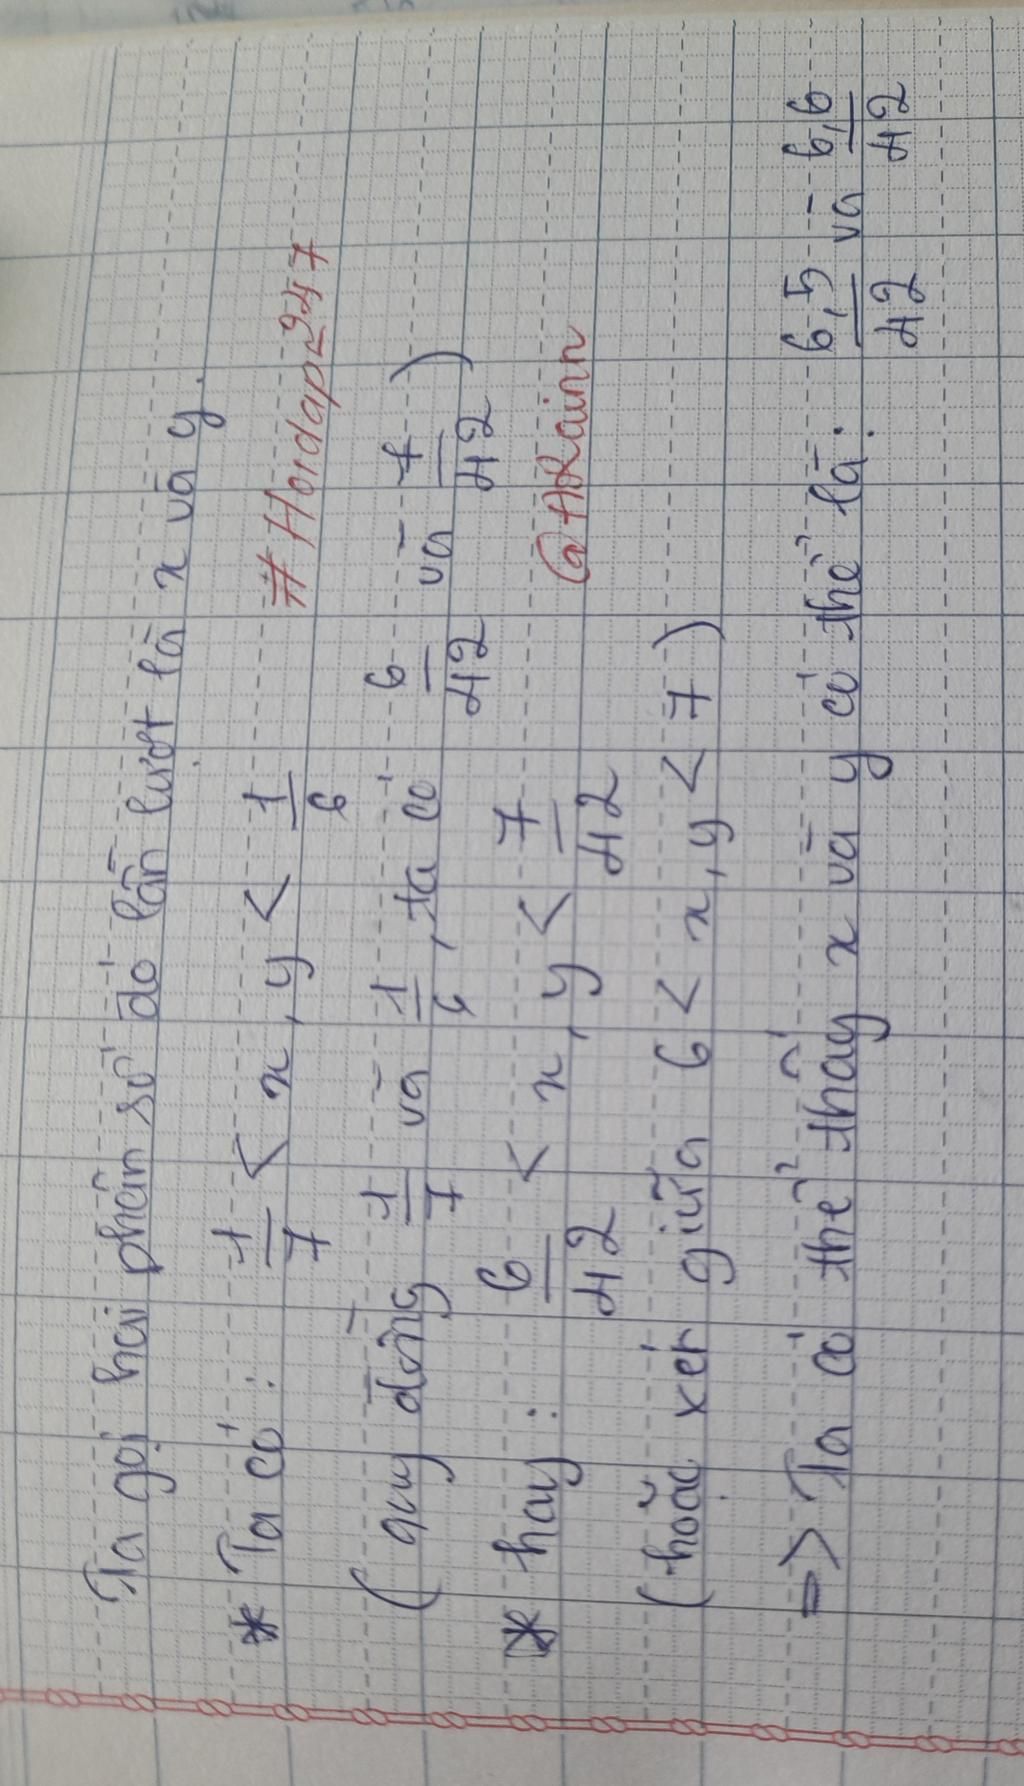 Ta gọi hai phân số đó lần lượt là x và y.
* Ta có: 1/7 < x, y < 1/6
#Hoidap247
(quy đồng 1/7 và 1/6, ta có 6/42 và 7/42)
* hay: 6/42 < x, y < 7/42
(hoặc xét giữa 6 < x, y < 7)
=> Ta có thể thấy x và y có thể là: 6,5/42 và 6,6/42